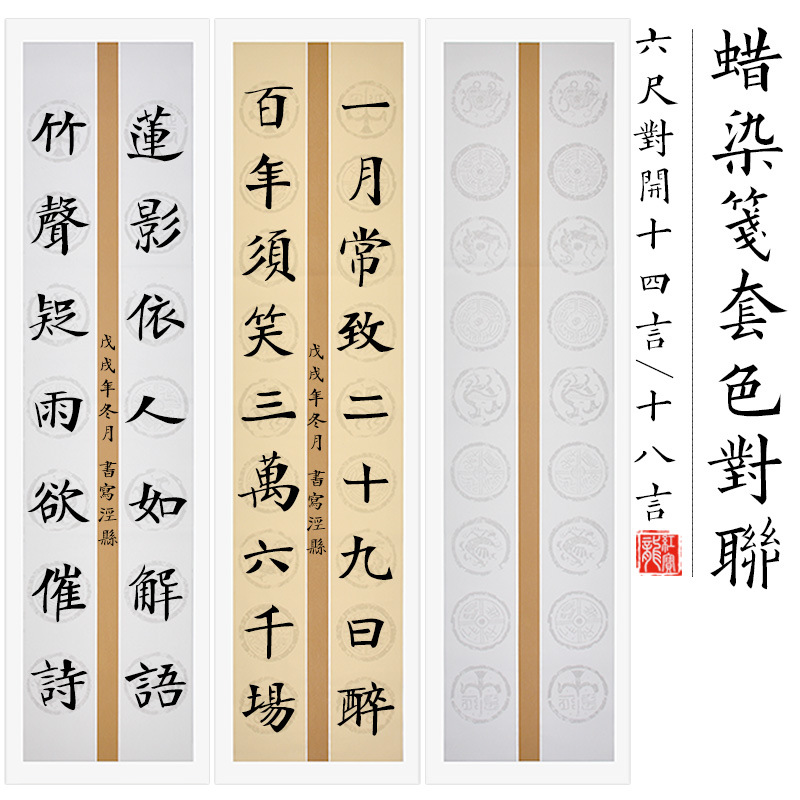 蜡染箋套色對聯
六尺對開十四言/十八言
一月常致二十九日醉
戊戌年冬月 書寫涇縣
百年須笑三萬六千場
蓮影依人如解語
戊戌年冬月 書寫涇縣
竹聲疑雨欲催詩